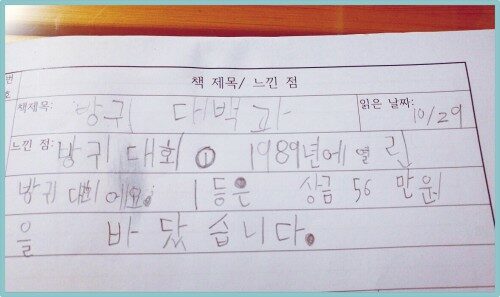 번호
책 제목/ 느낀 점
책제목: 방귀 대백과
읽은 날짜: 10/29
느낀 점: 방귀 대회 ① 1989년에 열린
방귀 대회에요. 1등은 상금 56 만원
을 바닸습니다.